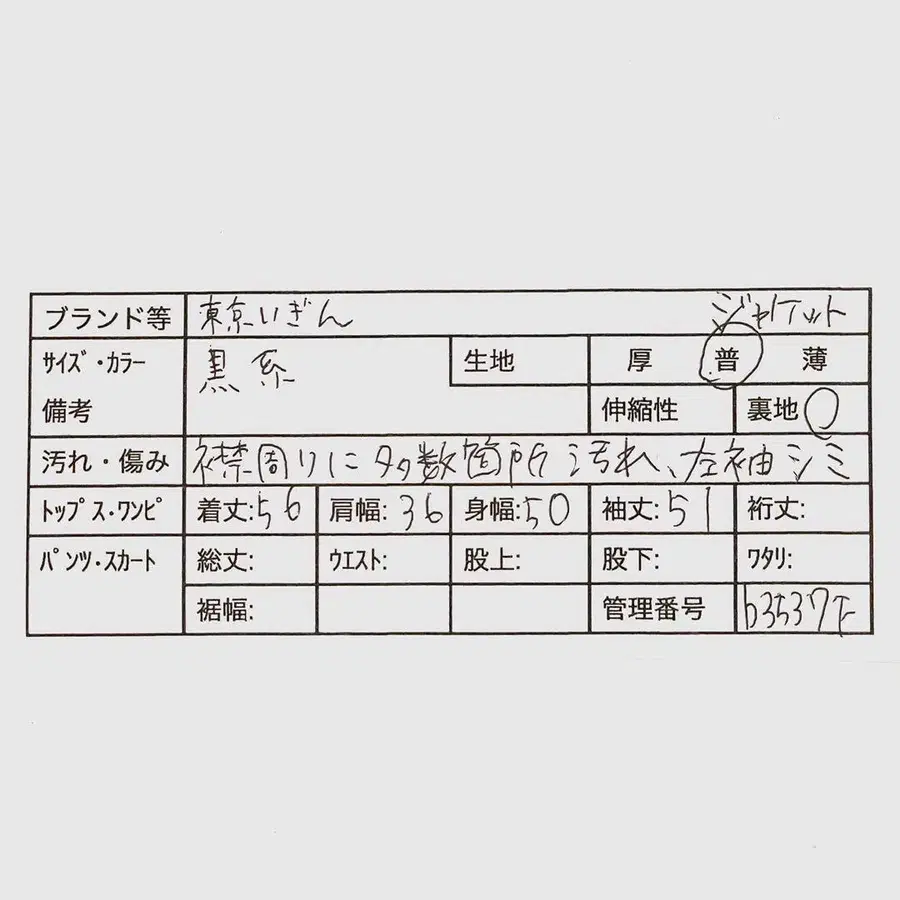 ブランド等 東京いぎん ジャケット
サイズ・カラー 黒系 生地 厚 普 薄
備考 伸縮性 裏地○
汚れ・傷み 襟周りに多数箇所汚れ、左袖シミ
トップス・ワンピ 着丈:56 肩幅:36 身幅:50 袖丈:51 裄丈:
パンツ・スカート 総丈: ウエスト: 股上: 股下: ワタリ:
裾幅: 管理番号